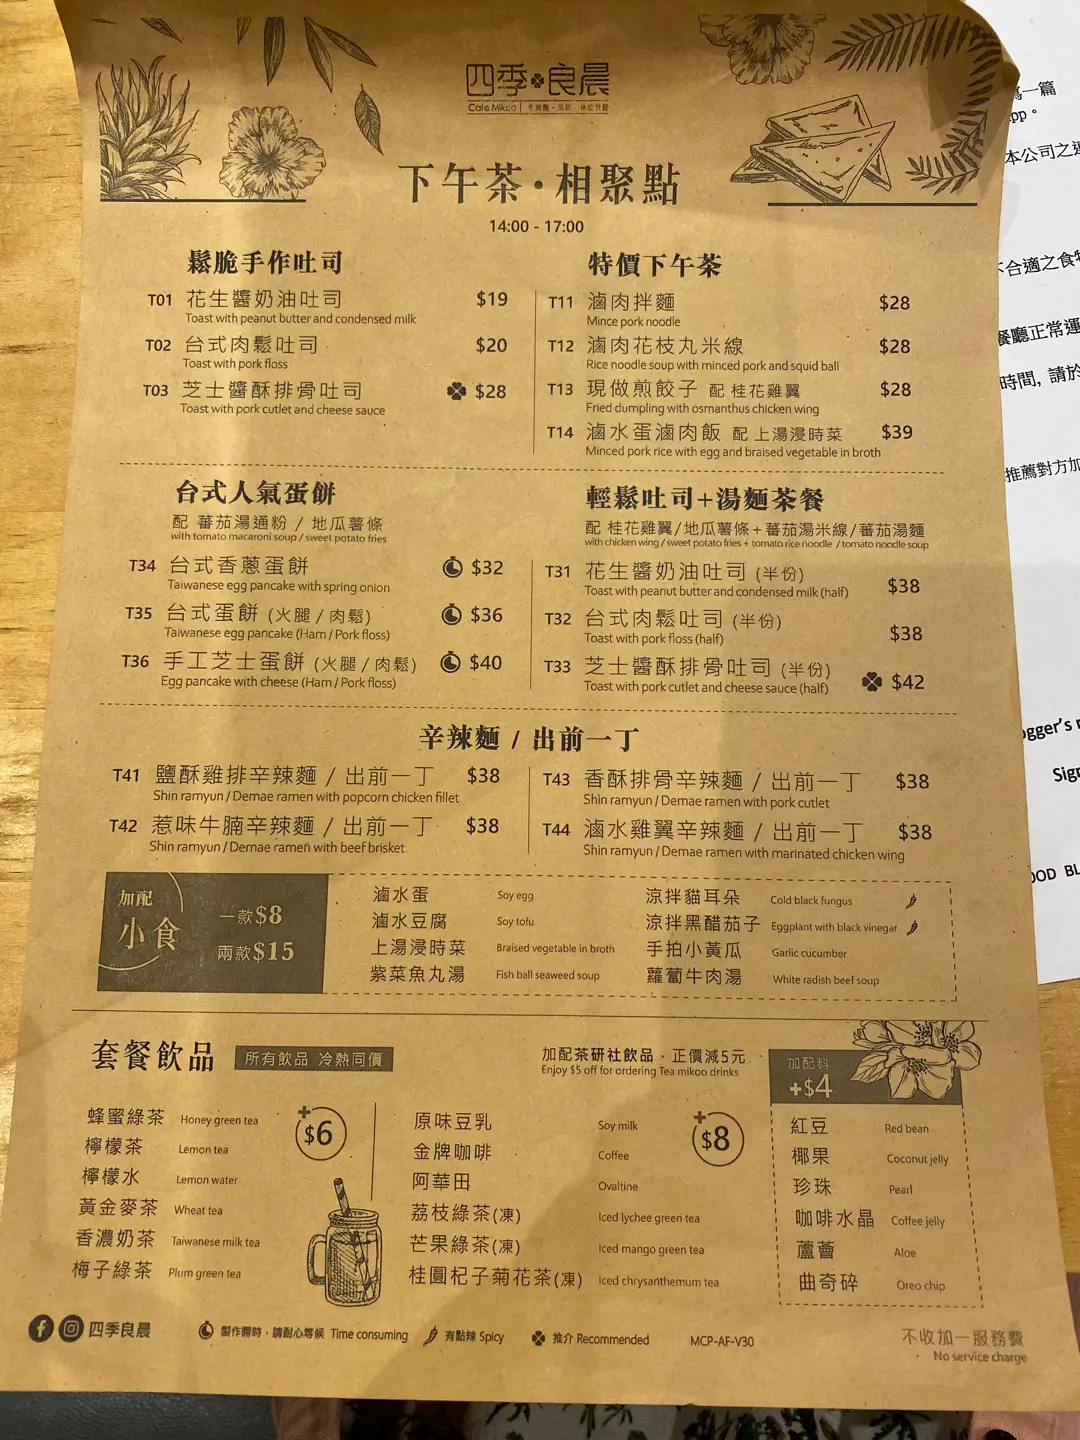 四季良晨
Cafe Mikoo
下午茶·相聚點
14:00 - 17:00
鬆脆手作吐司
T01 花生醬奶油吐司 $19
Toast with peanut butter and condensed milk
T02 台式肉鬆吐司 $20
Toast with pork floss
T03 芝士醬酥排骨吐司 $28
Toast with pork cutlet and cheese sauce
特價下午茶
T11 滷肉拌麵 $28
Mince pork noodle
T12 滷肉花枝丸米線 $28
Rice noodle soup with minced pork and squid ball
T13 現做煎餃子 配 桂花雞翼 $28
Fried dumpling with osmanthus chicken wing
T14 滷水蛋滷肉飯 配 上湯浸時菜 $39
Minced pork rice with egg and braised vegetable in broth
台式人氣蛋餅
配 蕃茄湯通粉 / 地瓜薯條
with tomato macaroni soup / sweet potato fries
T34 台式香蔥蛋餅 $32
Taiwanese egg pancake with spring onion
T35 台式蛋餅 (火腿 / 肉鬆) $36
Taiwanese egg pancake (Ham / Pork floss)
T36 手工芝士蛋餅 (火腿 / 肉鬆) $40
Egg pancake with cheese (Ham / Pork floss)
輕鬆吐司+湯麵茶餐
配 桂花雞翼/地瓜薯條+蕃茄湯米線/蕃茄湯麵
with chicken wing / sweet potato fries + tomato rice noodle / tomato noodle soup
T31 花生醬奶油吐司 (半份) $38
Toast with peanut butter and condensed milk (half)
T32 台式肉鬆吐司 (半份) $38
Toast with pork floss (half)
T33 芝士醬酥排骨吐司 (半份) $42
Toast with pork cutlet and cheese sauce (half)
辛辣麵 / 出前一丁
T41 鹽酥雞排辛辣麵 / 出前一丁 $38
Shin ramyun / Demae ramen with popcorn chicken fillet
T42 惹味牛腩辛辣麵 / 出前一丁 $38
Shin ramyun / Demae ramen with beef brisket
T43 香酥排骨辛辣麵 / 出前一丁 $38
Shin ramyun / Demae ramen with pork cutlet
T44 滷水雞翼辛辣麵 / 出前一丁 $38
Shin ramyun / Demae ramen with marinated chicken wing
加配
小食
一款$8
兩款$15
滷水蛋 Soy egg
滷水豆腐 Soy tofu
上湯浸時菜 Braised vegetable in broth
紫菜魚丸湯 Fish ball seaweed soup
涼拌貓耳朵 Cold black fungus
涼拌黑醋茄子 Eggplant with black vinegar
手拍小黃瓜 Garlic cucumber
蘿蔔牛肉湯 White radish beef soup
套餐飲品 所有飲品 冷熱同價
加配茶研社飲品·正價減5元
Enjoy $5 off for ordering Tea mikoo drinks
蜂蜜綠茶 Honey green tea
檸檬茶 Lemon tea
檸檬水 Lemon water
黃金麥茶 Wheat tea
香濃奶茶 Taiwanese milk tea
梅子綠茶 Plum green tea
+$6
原味豆乳 Soy milk
金牌咖啡 Coffee
阿華田 Ovaltine
荔枝綠茶(凍) Iced lychee green tea
芒果綠茶(凍) Iced mango green tea
桂圓杞子菊花茶(凍) Iced chrysanthemum tea
+$8
加配料
+$4
紅豆 Red bean
椰果 Coconut jelly
珍珠 Pearl
咖啡水晶 Coffee jelly
蘆薈 Aloe
曲奇碎 Oreo chip
四季良晨
製作需時·請耐心等候 Time consuming
有點辣 Spicy
推介 Recommended
MCP-AF-V30
不收加一服務費
No service charge
一篇
本公司之
合適之食
餐廳正常運
時間, 請於
推薦對方加
gger's
Sig
OOD BL